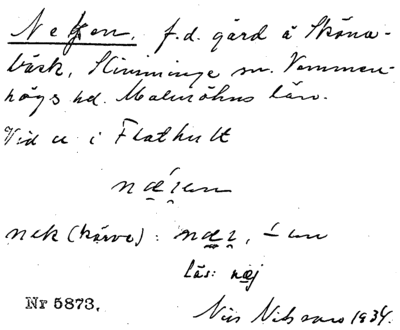 Neken. f.d. gård å Sköna-
bäck, Slimminge sn. Vemmen-
högs hd. Malmöhus län.
Vid u i Flathult
nek (kärve):
Läs: næj
Nr 5873.
Nils Nilsson 1934.